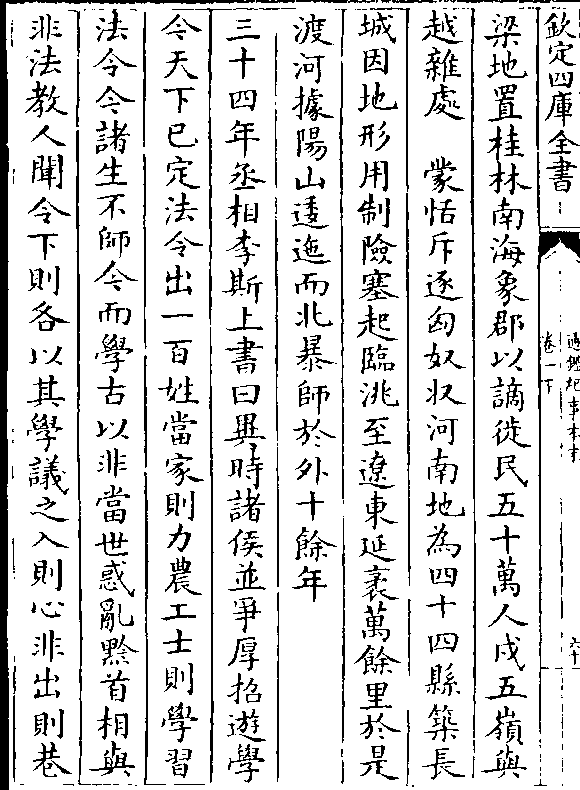 欽定四庫全書
通鑑紀事本末
卷一下
六十
梁地置桂林南海象郡以謫徙民五十萬人戍五嶺與
越雜處　蒙恬斥逐匈奴收河南地為四十四縣築長
城因地形用制險塞起臨洮至遼東延袤萬餘里於是
渡河據陽山逶迤而北暴師於外十餘年
三十四年丞相李斯上書曰異時諸侯並爭厚招遊學
今天下已定法令出一百姓當家則力農工士則學習
法令今諸生不師今而學古以非當世惑亂黔首相與
非法教人聞令下則各以其學議之入則心非出則巷